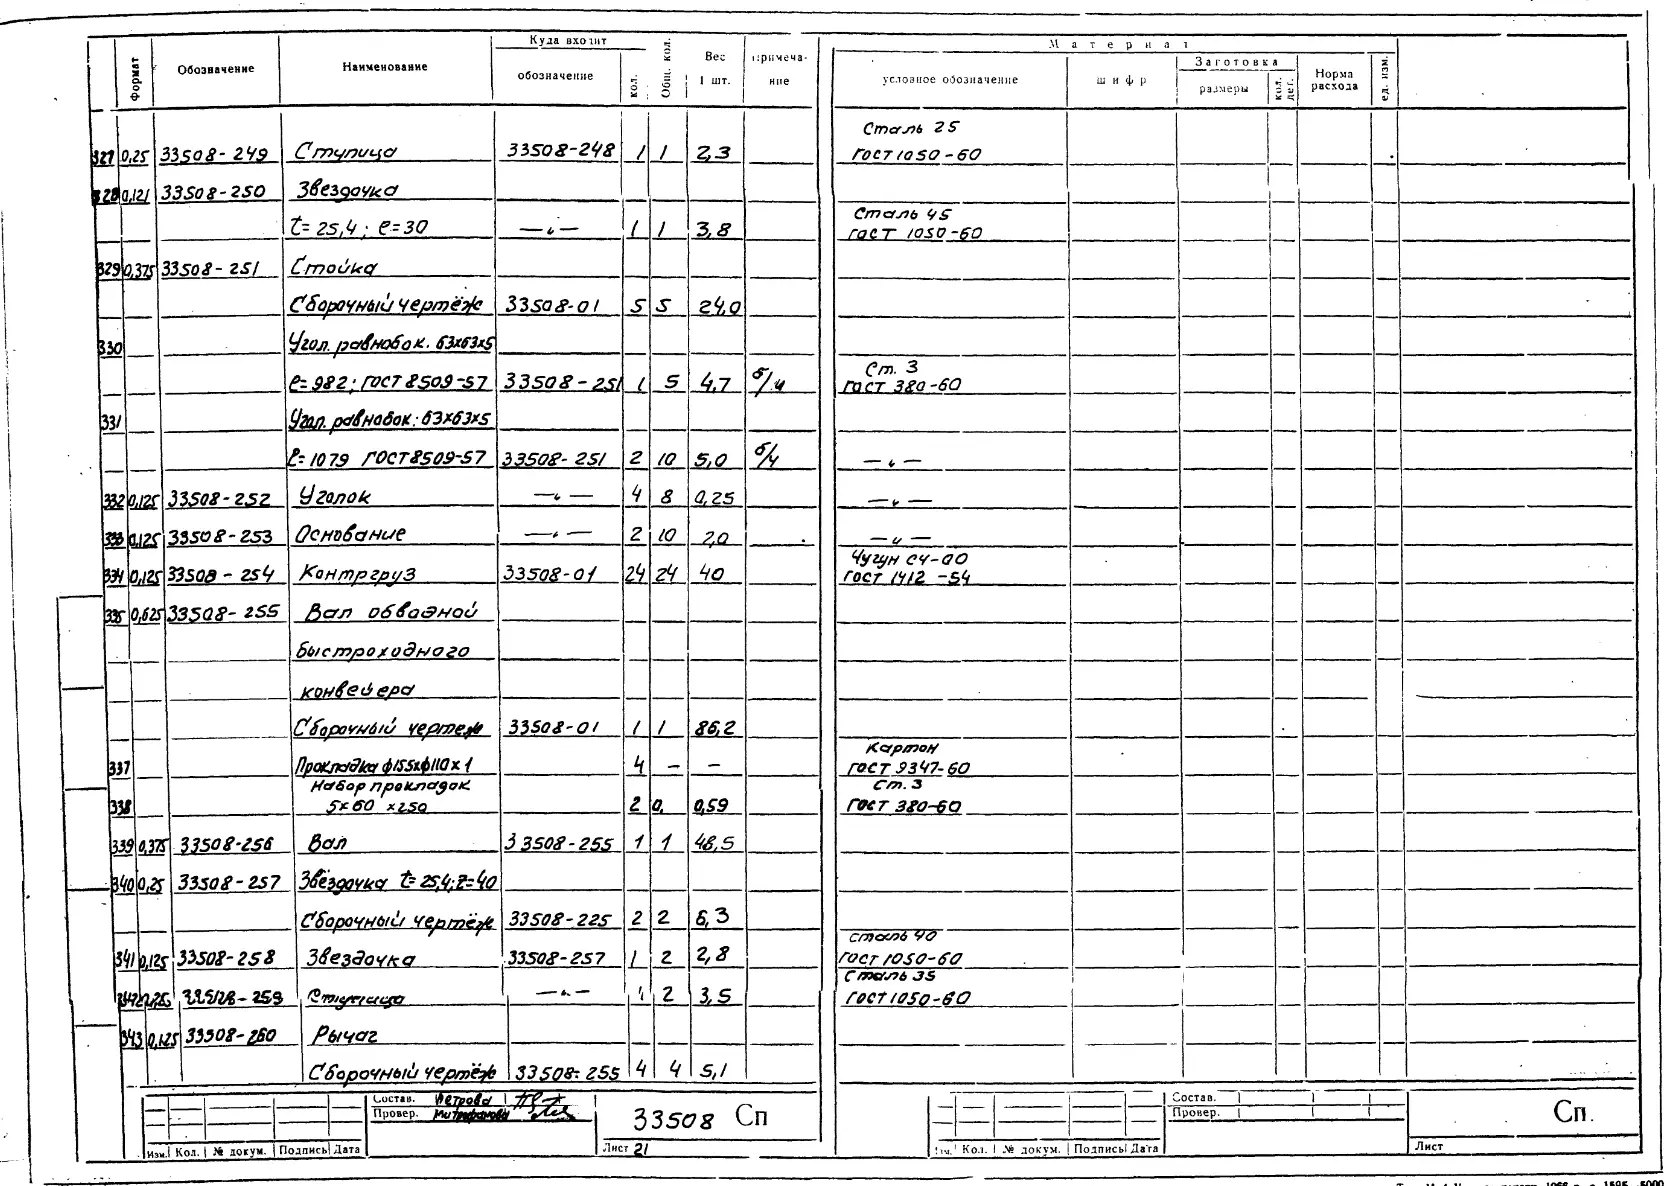 Формат
Обозначение
Наименование
Куда входит
обозначение
кол.
Общ. кол.
Вес 1 шт.
примеча-ние
Материал
условное обозначение
шифр
Заготовка
размеры
кол. дет.
Норма расхода
ед. изм.
Сталь 25
327 0,25 33508-249 Ступица 33508-248 1 1 2,3 ГОСТ 1050-60
328 0,121 33508-250 Звездочка
Сталь 45
t=25,4; e=30 —〃— 1 1 3,8 ГОСТ 1050-60
329 0,375 33508-251 Стойка
Сборочный чертёж 33508-01 5 5 24,0
330 Угол. равнобок. 63х63х5
Ст. 3
e=982; ГОСТ 8509-57 33508-251 1 5 4,7 б/ч ГОСТ 380-60
331 Угол. равнобок. 63х63х5
l=1079 ГОСТ 8509-57 33508-251 2 10 5,0 б/ч —〃—
332 0,125 33508-252 Уголок —〃— 4 8 0,25 —〃—
333 0,125 33508-253 Основание —〃— 2 10 2,0 —〃—
Чугун СЧ-00
334 0,125 33508-254 Контргруз 33508-01 24 24 40 ГОСТ 1412-54
335 0,625 33508-255 Вал обводной
быстроходного
конвейера
Сборочный чертеж 33508-01 1 1 86,2
Картон
337 Прокладка ф155хф110х1 4 — — ГОСТ 9347-60
Набор прокладок Ст. 3
338 5х60 х250 2 0. 0,59 ГОСТ 380-60
339 0,375 33508-256 Вал 33508-255 1 1 48,5
340 0,25 33508-257 Звёздочка t=25,4; z=40
Сборочный чертёж 33508-225 2 2 6,3
Сталь 40
341 0,125 33508-258 Звездочка 33508-257 1 2 2,8 ГОСТ 1050-60
Сталь 35
342 33508-259 Ступица —〃— 1 2 3,5 ГОСТ 1050-60
343 0,125 33508-260 Рычаг
Сборочный чертёж 33508-255 4 4 5,1
Состав. Петрова
Провер. Митрофанова
33508 Сп
Изм. Кол. № докум. Подпись Дата
Лист 21
Состав.
Провер.
Сп.
Изм. Кол. № докум. Подпись Дата
Лист